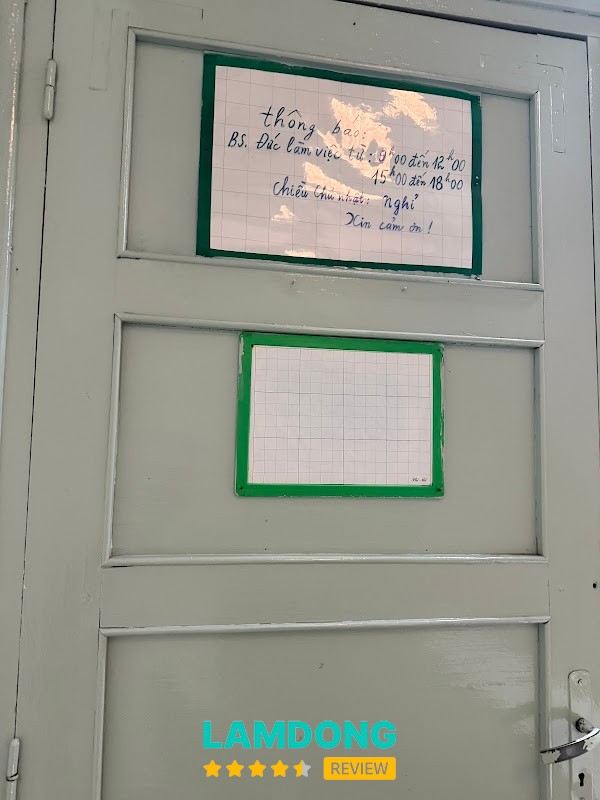 thông báo:
BS. Đức làm việc từ: 9h00 đến 12h00
15h00 đến 18h00
chiều chủ nhật: nghỉ
Xin cảm ơn!
LAMDONG
REVIEW